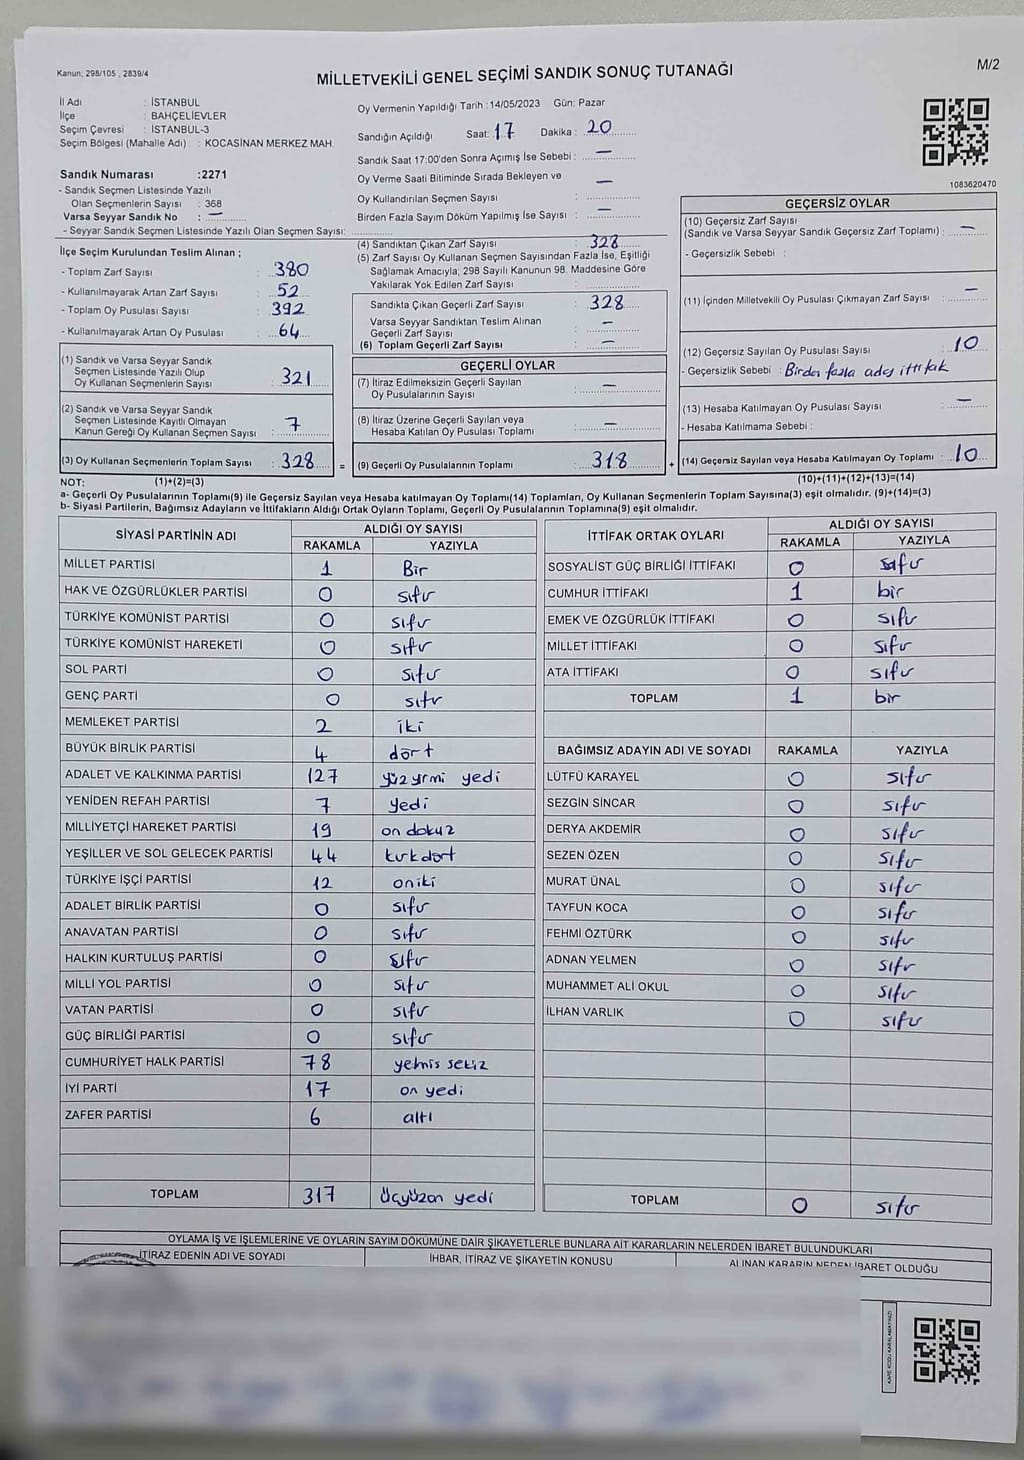 Kanun; 298/105 , 2839/4
MİLLETVEKİLİ GENEL SEÇİMİ SANDIK SONUÇ TUTANAĞI
M/2
İl Adı : İSTANBUL
İlçe : BAHÇELİEVLER
Seçim Çevresi : İSTANBUL-3
Seçim Bölgesi (Mahalle Adı) : KOCASİNAN MERKEZ MAH.
Sandık Numarası :2271
- Sandık Seçmen Listesinde Yazılı
Olan Seçmenlerin Sayısı : 368
Varsa Seyyar Sandık No : —
- Seyyar Sandık Seçmen Listesinde Yazılı Olan Seçmen Sayısı:
Oy Vermenin Yapıldığı Tarih :14/05/2023 Gün: Pazar
Sandığın Açıldığı Saat: 17 Dakika : 20
Sandık Saat 17:00'den Sonra Açımış İse Sebebi : —
Oy Verme Saati Bitiminde Sırada Bekleyen ve
Oy Kullandırılan Seçmen Sayısı : —
Birden Fazla Sayım Döküm Yapılmış İse Sayısı : —
1083620470
İlçe Seçim Kurulundan Teslim Alınan ;
- Toplam Zarf Sayısı : 380
- Kullanılmayarak Artan Zarf Sayısı : 52
- Toplam Oy Pusulası Sayısı : 392
- Kullanılmayarak Artan Oy Pusulası : 64
(1) Sandık ve Varsa Seyyar Sandık
Seçmen Listesinde Yazılı Olup
Oy Kullanan Seçmenlerin Sayısı : 321
(2) Sandık ve Varsa Seyyar Sandık
Seçmen Listesinde Kayıtlı Olmayan
Kanun Gereği Oy Kullanan Seçmen Sayısı : 7
(3) Oy Kullanan Seçmenlerin Toplam Sayısı : 328 =
(4) Sandıktan Çıkan Zarf Sayısı : 328
(5) Zarf Sayısı Oy Kullanan Seçmen Sayısından Fazla İse, Eşitliği
Sağlamak Amacıyla; 298 Sayılı Kanunun 98. Maddesine Göre
Yakılarak Yok Edilen Zarf Sayısı :
Sandıkta Çıkan Geçerli Zarf Sayısı : 328
Varsa Seyyar Sandıktan Teslim Alınan
Geçerli Zarf Sayısı : —
(6) Toplam Geçerli Zarf Sayısı : —
GEÇERLİ OYLAR
(7) İtiraz Edilmeksizin Geçerli Sayılan
Oy Pusulalarının Sayısı : —
(8) İtiraz Üzerine Geçerli Sayılan veya
Hesaba Katılan Oy Pusulası Toplamı : —
(9) Geçerli Oy Pusulalarının Toplamı : 318 +
GEÇERSİZ OYLAR
(10) Geçersiz Zarf Sayısı
(Sandık ve Varsa Seyyar Sandık Geçersiz Zarf Toplamı) : —
- Geçersizlik Sebebi :
(11) İçinden Milletvekili Oy Pusulası Çıkmayan Zarf Sayısı : —
(12) Geçersiz Sayılan Oy Pusulası Sayısı : 10
- Geçersizlik Sebebi : Birden fazla aday ittifak
(13) Hesaba Katılmayan Oy Pusulası Sayısı : —
- Hesaba Katılmama Sebebi :
(14) Geçersiz Sayılan veya Hesaba Katılmayan Oy Toplamı : 10
NOT: (1)+(2)=(3) (10)+(11)+(12)+(13)=(14)
a- Geçerli Oy Pusulalarının Toplamı(9) ile Geçersiz Sayılan veya Hesaba katılmayan Oy Toplamı(14) Toplamları, Oy Kullanan Seçmenlerin Toplam Sayısına(3) eşit olmalıdır. (9)+(14)=(3)
b- Siyasi Partilerin, Bağımsız Adayların ve İttifakların Aldığı Ortak Oyların Toplamı, Geçerli Oy Pusulalarının Toplamına(9) eşit olmalıdır.
SİYASİ PARTİNİN ADI ALDIĞI OY SAYISI
RAKAMLA YAZIYLA
MİLLET PARTİSİ 1 Bir
HAK VE ÖZGÜRLÜKLER PARTİSİ 0 sıfır
TÜRKİYE KOMÜNİST PARTİSİ 0 sıfır
TÜRKİYE KOMÜNİST HAREKETİ 0 sıfır
SOL PARTİ 0 sıfır
GENÇ PARTİ 0 sıfır
MEMLEKET PARTİSİ 2 iki
BÜYÜK BİRLİK PARTİSİ 4 dört
ADALET VE KALKINMA PARTİSİ 127 yüz yrmi yedi
YENİDEN REFAH PARTİSİ 7 yedi
MİLLİYETÇİ HAREKET PARTİSİ 19 on dokuz
YEŞİLLER VE SOL GELECEK PARTİSİ 44 kırkdört
TÜRKİYE İŞÇİ PARTİSİ 12 oniki
ADALET BİRLİK PARTİSİ 0 sıfır
ANAVATAN PARTİSİ 0 sıfır
HALKIN KURTULUŞ PARTİSİ 0 sıfır
MİLLİ YOL PARTİSİ 0 sıfır
VATAN PARTİSİ 0 sıfır
GÜÇ BİRLİĞİ PARTİSİ 0 sıfır
CUMHURİYET HALK PARTİSİ 78 yetmis sekiz
İYİ PARTİ 17 on yedi
ZAFER PARTİSİ 6 altı
TOPLAM 317 üçyüzon yedi
İTTİFAK ORTAK OYLARI ALDIĞI OY SAYISI
RAKAMLA YAZIYLA
SOSYALİST GÜÇ BİRLİĞİ İTTİFAKI 0 sıfır
CUMHUR İTTİFAKI 1 bir
EMEK VE ÖZGÜRLÜK İTTİFAKI 0 sıfır
MİLLET İTTİFAKI 0 sıfır
ATA İTTİFAKI 0 sıfır
TOPLAM 1 bir
BAĞIMSIZ ADAYIN ADI VE SOYADI RAKAMLA YAZIYLA
LÜTFÜ KARAYEL 0 sıfır
SEZGİN SİNCAR 0 sıfır
DERYA AKDEMİR 0 sıfır
SEZEN ÖZEN 0 sıfır
MURAT ÜNAL 0 sıfır
TAYFUN KOCA 0 sıfır
FEHMİ ÖZTÜRK 0 sıfır
ADNAN YELMEN 0 sıfır
MUHAMMET ALİ OKUL 0 sıfır
İLHAN VARLIK 0 sıfır
TOPLAM 0 sıfır
OYLAMA İŞ VE İŞLEMLERİNE VE OYLARIN SAYIM DÖKÜMÜNE DAİR ŞİKAYETLERLE BUNLARA AİT KARARLARIN NELERDEN İBARET BULUNDUKLARI
İTİRAZ EDENİN ADI VE SOYADI İHBAR, İTİRAZ VE ŞİKAYETİN KONUSU ALINAN KARARIN NEDEN İBARET OLDUĞU